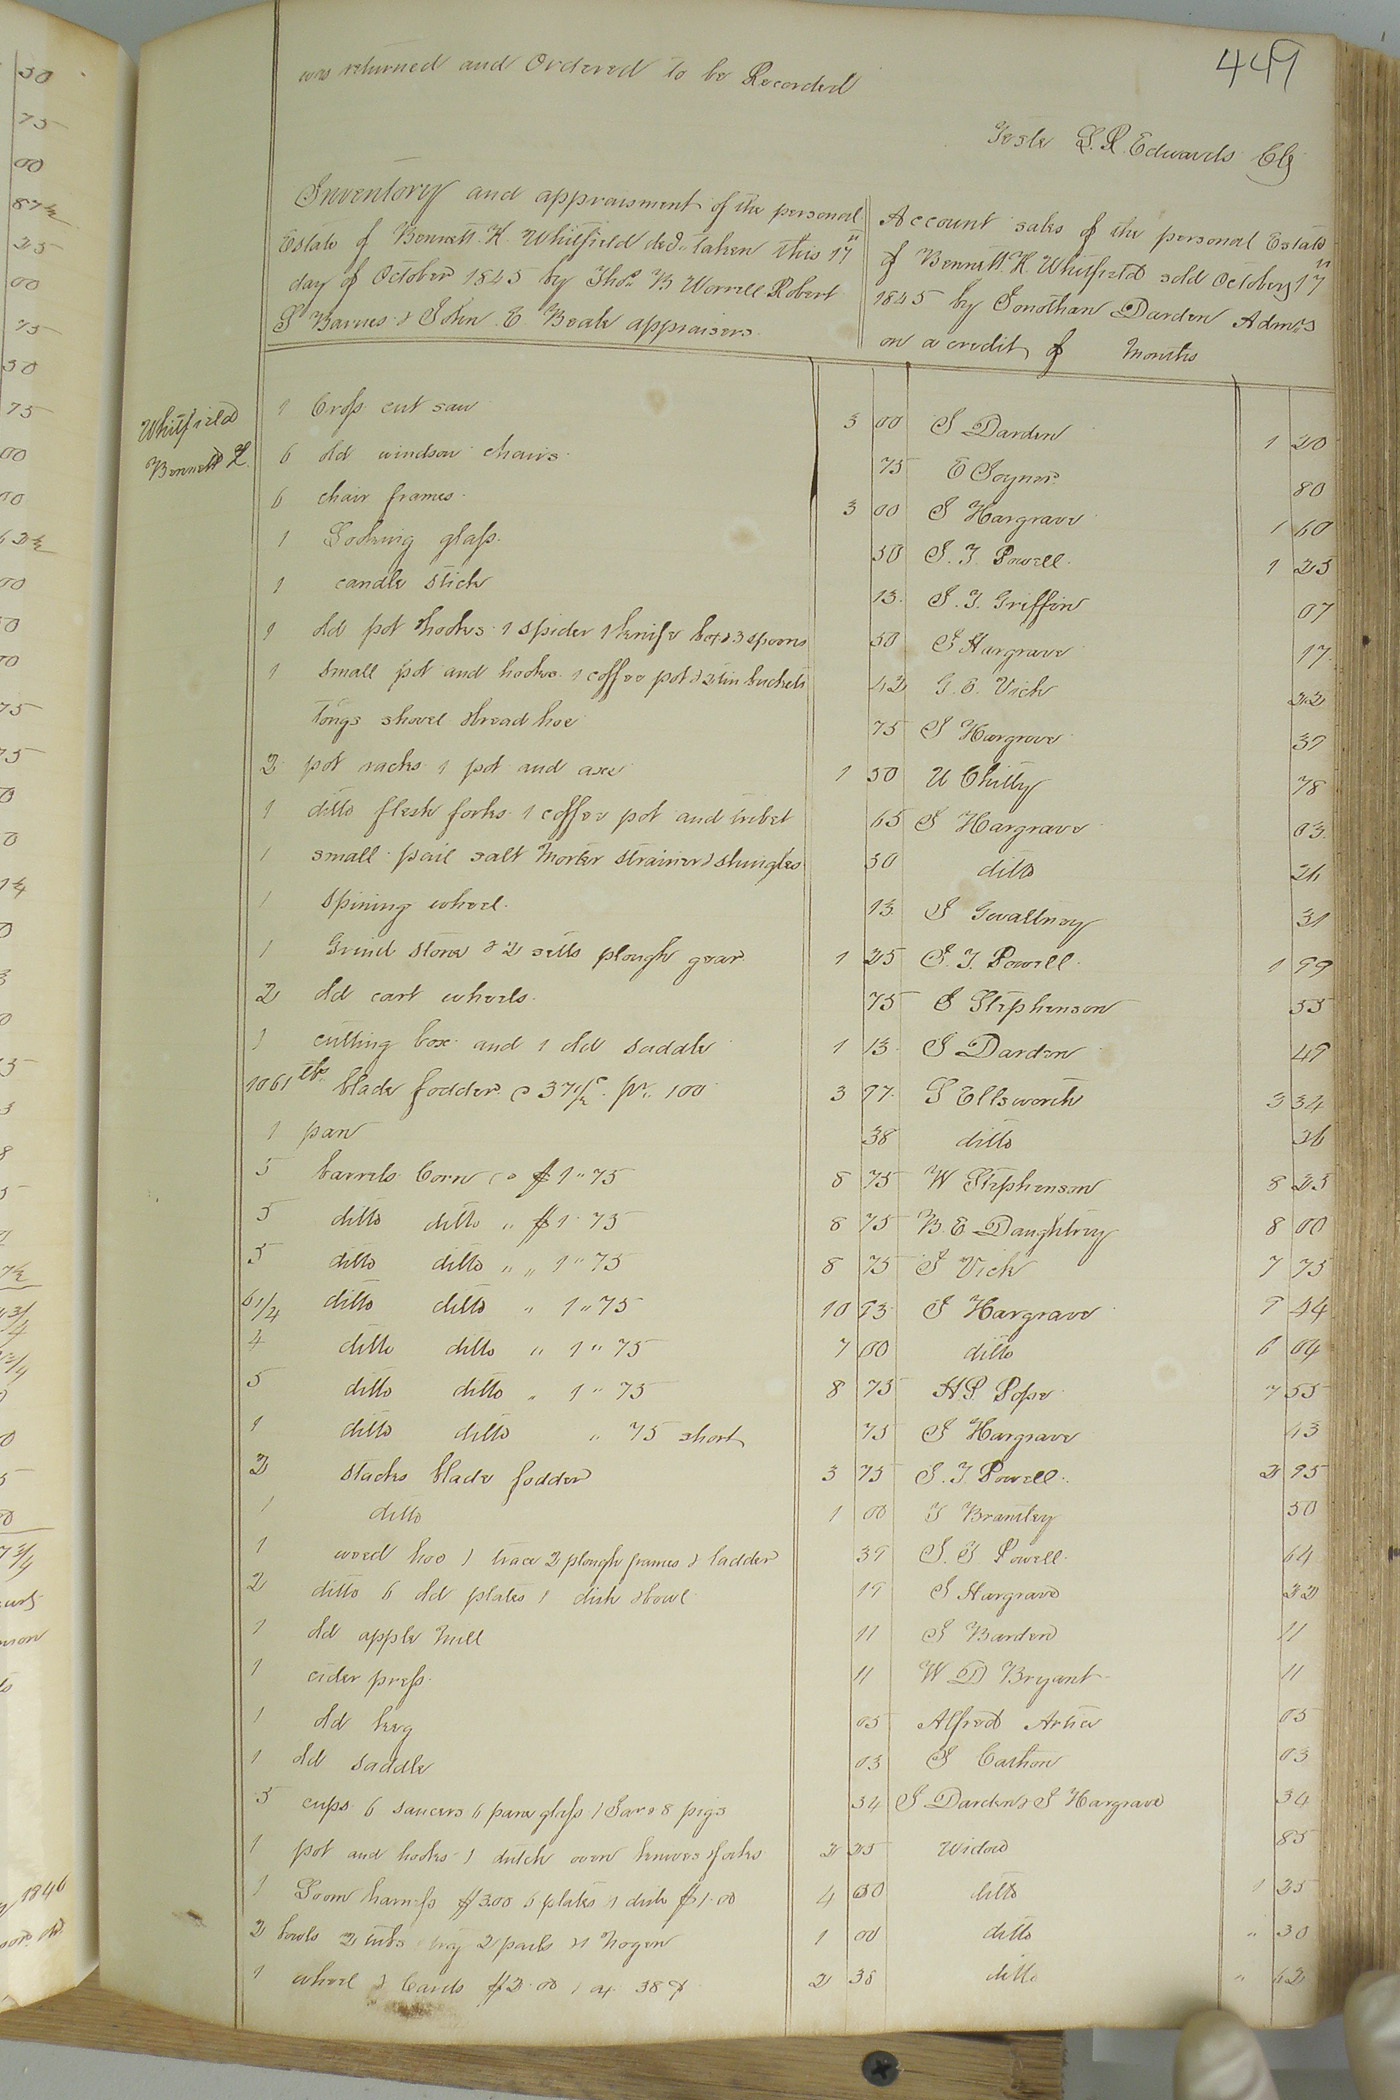 449
was returned and Ordered to be Recorded
Teste L. R. Edwards Clk
Inventory and appraisment of the personal
Estate of Bennett. H. Whitfield decd. taken this 17th
day of October 1845 by Thos. B Worrell Robert
S Barnes & John. E Beale appraisers
Account sales of the personal Estate
of Bennett. H Whitfield sold October 17th
1845 by Jonathan Darden Admrs
on a credit of Months
Whitfield
Bennett H.
1 Cross cut saw 3 00 J Darden 1 20
6 old windsor chairs 75 E Joyner 80
6 chair frames 3 00 J Hargrave 1 60
1 Looking glass 50 J. T. Powell 1 25
1 candle stick 13 J. T. Griffin 07
1 old pot hooks 1 spider 1 knife box & 3 spoons 50 J Hargrave 17
1 small pot and hooks 1 coffee pot & 2 tin buckets 42 J. E. Vick 22
tongs shovel & bread hoe 75 J Hargrave 39
2 pot racks 1 pot and axe 1 50 U Chitty 78
1 ditto flesh forks 1 coffee pot and tribet 65 J Hargrave 03
1 small pail salt Morter strainer & shingles 30 ditto 26
1 spining wheel 13 J Gwaltney 31
1 Grind stone & 2 setts plough gear 1 25 J. T. Powell 1 99
2 old cart wheels 75 J Stephenson 55
1 cutting box and 1 old saddle 1 13 J Darden 49
1061 lbs blade fodder @ 37 1/2 c pr. 100 3 97 J Ellsworth 3 34
1 pan 38 ditto 36
5 barrels Corn @ $1 " 75 8 75 W Stephenson 8 25
5 ditto ditto " $1 75 8 75 B. E Daughtrey 8 00
5 ditto ditto " " 1 " 75 8 75 J Vick 7 75
6 1/4 ditto ditto " 1 " 75 10 93 J Hargrave 9 44
4 ditto ditto " 1 " 75 7 00 ditto 6 04
5 ditto ditto " 1 " 75 8 75 H. P. Pope 7 55
1 ditto ditto " 75 short 75 J Hargrave 43
2 stacks blade fodder 3 75 J. T Powell 2 95
1 ditto 1 00 J Brantley 50
1 weed hoe 1 trace 2 plough frames & ladder 39 J. T Powell 64
2 ditto 6 old plates 1 dish & bowl 19 J Hargrave 22
1 old apple mill 11 J Barden 11
1 cider press 11 W D Bryant 11
1 old keg 05 Alfred Artis 05
1 old saddle 03 J Cathon 03
5 cups 6 saucers 6 pane glass 1 Jar & 8 pigs 34 J Darden & J Hargrave 34
1 pot and hooks 1 dutch oven knives & forks 2 25 Widow 85
1 Loom harness $3.00 6 plates 1 dish $1.00 4 00 ditto 1 35
2 bowls 2 tubs 2 pails & 1 Nogen 1 00 ditto " 30
1 wheel & Cards $2.00 1 ax 38 2 38 ditto " 62